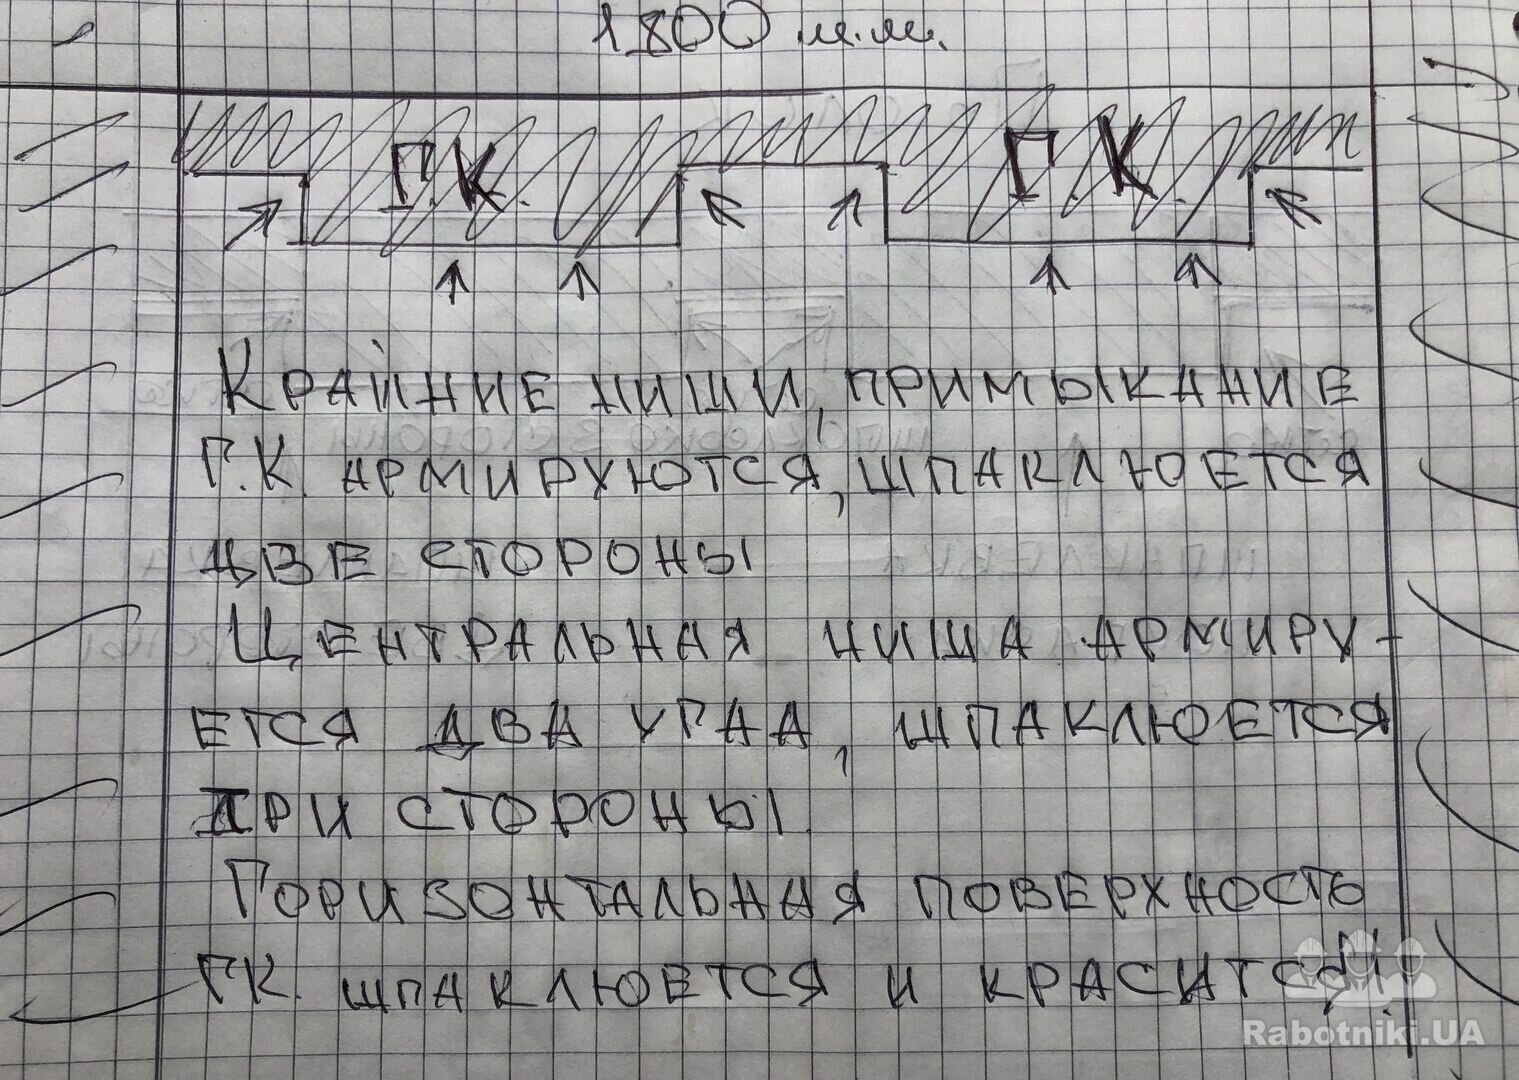 1800 м.м.
Г.К. Г.К.
Крайние ниши, примыкание
Г.К. армируются, шпаклюется
две стороны
Центральная ниша армиру-
ется два угла, шпаклюется
три стороны.
Горизонтальная поверхность
ГК. шпаклюется и красится!
Rabotniki.UA